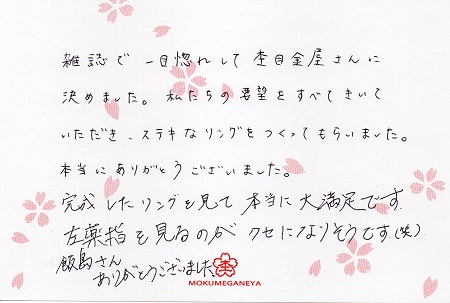 雑誌で一目惚れして杢目金屋さんに
決めました。私たちの要望をすべてきいて
いただき、ステキなリングをつくってもらいました。
本当にありがとうございました。
完成したリングを見て本当に大満足です
左薬指を見るのがクセになりそうです(笑)
飯島さん
ありがとうございました。
杢
MOKUMEGANEYA